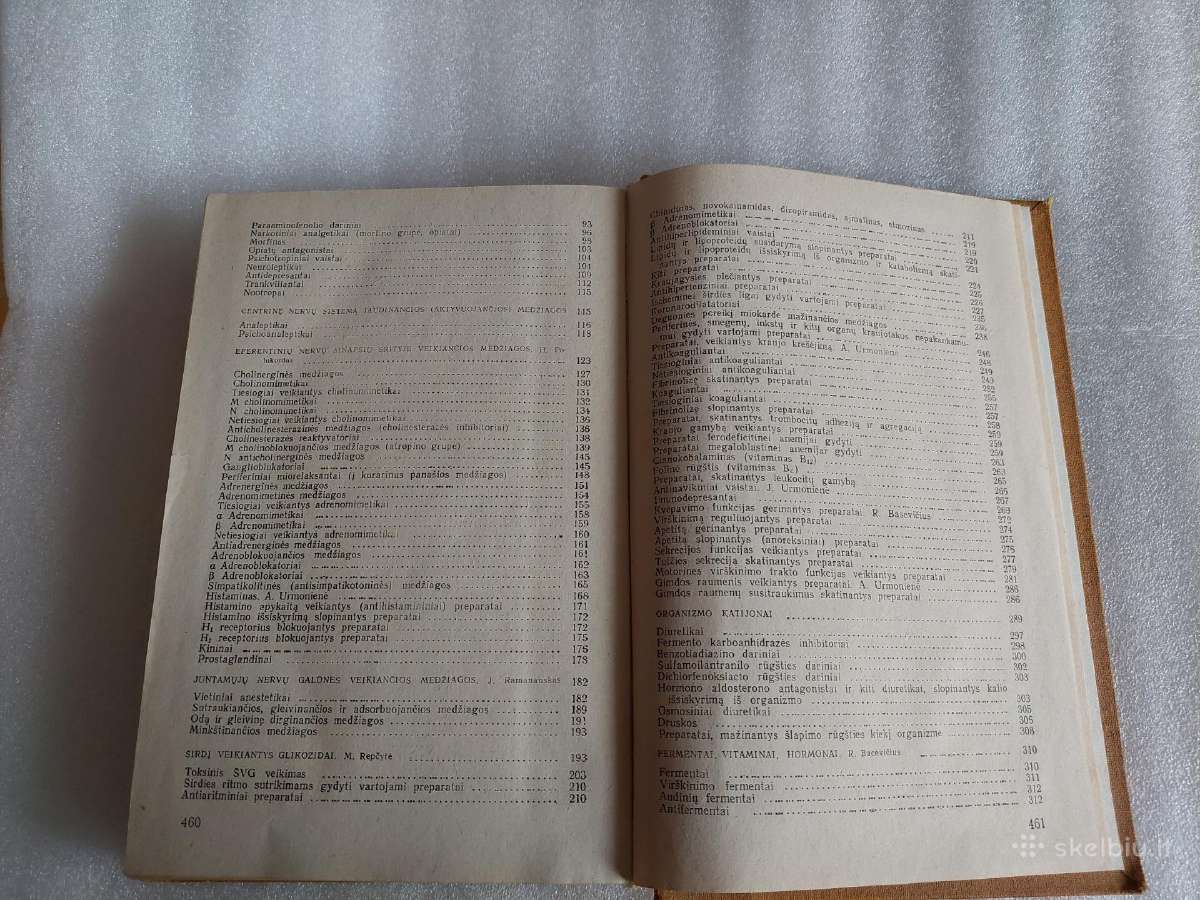 Paraaminofenolio dariniai 93
Narkotiniai analgetikai (morfino grupė, opiatai) 96
Morfinas 98
Opiatų antagonistai 103
Psichotropiniai vaistai 104
Neuroleptikai 104
Antidepresantai 109
Trankviliantai 112
Nootropai 115
CENTRINĘ NERVŲ SISTEMĄ JAUDINANČIOS (AKTYVUOJANČIOS) MEDŽIAGOS 115
Analeptikai 116
Psichoanaleptikai 118
EFERENTINIŲ NERVŲ SINAPSIŲ SRITYJE VEIKIANČIOS MEDŽIAGOS.
123
Cholinerginės medžiagos 127
Cholinomimetikai 130
Tiesiogiai veikiantys cholinomimetikai 131
M cholinomimetikai 132
N cholinomimetikai 134
Netiesiogiai veikiantys cholinomimetikai 136
Anticholinesterazinės medžiagos (cholinesterazės inhibitoriai) 136
Cholinesterazės reaktyvatoriai 138
M cholinoblokuojančios medžiagos (atropino grupė) 139
N anticholinerginės medžiagos 145
Ganglioblokatoriai 145
Periferiniai miorelaksantai (į kurarinus panašios medžiagos) 148
Adrenerginės medžiagos 151
Adrenomimetinės medžiagos 154
Tiesiogiai veikiantys adrenomimetikai 155
α Adrenomimetikai 158
β Adrenomimetikai 159
Netiesiogiai veikiantys adrenomimetikai 160
Antiadrenerginės medžiagos 161
Adrenoblokuojančios medžiagos 161
α Adrenoblokatoriai 162
β Adrenoblokatoriai 163
Simpatikolitinės (antisimpatikotoninės) medžiagos 165
Histaminas. A. Urmonienė 168
Histamino apykaitą veikiantys (antihistamininiai) preparatai 171
Histamino išsiskyrimą slopinantys preparatai 172
H₁ receptorius blokuojantys preparatai 172
H₂ receptorius blokuojantys preparatai 175
Kininai 176
Prostaglandinai 178
JUNTAMŲJŲ NERVŲ GALŪNES VEIKIANČIOS MEDŽIAGOS. J. Ramanauskas 182
Vietiniai anestetikai 182
Sutraukiančios, gleivinančios ir adsorbuojančios medžiagos 189
Odą ir gleivinę dirginančios medžiagos 191
Minkštinančios medžiagos 193
ŠIRDĮ VEIKIANTYS GLIKOZIDAI. M. Repčytė 193
Toksinis ŠVG veikimas 203
Širdies ritmo sutrikimams gydyti vartojami preparatai 210
Antiaritminiai preparatai 210
460
Chinidinas, novokainamidas, diropiramidas, ajmalinas, etmozinas 211
β Adrenomimetikai 219
β Adrenoblokatoriai 219
Antihiperlipideminiai vaistai 220
Lipidų ir lipoproteidų susidarymą slopinantys preparatai 221
Lipidų ir lipoproteidų išsiskyrimą iš organizmo ir katabolizmą skatinantys preparatai 224
Kiti preparatai 225
Kraujagysles plečiantys preparatai 225
Antihipertenziniai preparatai 226
Išeminei širdies ligai gydyti vartojami preparatai 227
Koronarodilatatoriai 235
Deguonies poreikį miokarde mažinančios medžiagos 236
Periferinės, smegenų, inkstų ir kitų organų kraujotakos nepakankamumui gydyti vartojami preparatai 238
Preparatai, veikiantys kraujo krešėjimą. A. Urmonienė 246
Antikoaguliantai 248
Tiesioginiai antikoaguliantai 249
Netiesioginiai antikoaguliantai 249
Fibrinolizę skatinantys preparatai 252
Koaguliantai 255
Tiesioginiai koaguliantai 257
Fibrinolizę slopinantys preparatai 257
Preparatai, skatinantys trombocitų adheziją ir agregaciją 258
Kraujo gamybą veikiantys preparatai 259
Preparatai ferodeficitinei anemijai gydyti 259
Preparatai megaloblastinei anemijai gydyti 259
Cianokobalaminas (vitaminas B₁₂) 263
Folinė rūgštis (vitaminas B꜀) 263
Preparatai, skatinantys leukocitų gamybą 265
Antinavikiniai vaistai. J. Urmonienė 266
Imunodepresantai 267
Kvėpavimo funkcijas gerinantys preparatai. R. Basevičius 269
Virškinimą reguliuojantys preparatai 272
Apetitą gerinantys preparatai 274
Apetitą slopinantys (anoreksiniai) preparatai 275
Sekrecijos funkcijas veikiantys preparatai 276
Tulžies sekreciją skatinantys preparatai 277
Motorines virškinimo trakto funkcijas veikiantys preparatai 279
Gimdos raumenis veikiantys preparatai. A. Urmonienė 281
Gimdos raumenų susitraukimus skatinantys preparatai 286
286
ORGANIZMO KATIJONAI 289
Diuretikai 297
Fermento karboanhidrazės inhibitoriai 298
Benzotiadiazino dariniai 300
Sulfamoilantranilo rūgšties dariniai 302
Dichlorfenoksiacto rūgšties dariniai 303
Hormono aldosterono antagonistai ir kiti diuretikai, slopinantys kalio
išsiskyrimą iš organizmo 303
Osmosiniai diuretikai 305
Druskos 305
Preparatai, mažinantys šlapimo rūgšties kiekį organizme 308
FERMENTAI, VITAMINAI, HORMONAI. R. Basevičius 310
Fermentai 310
Virškinimo fermentai 311
Audinių fermentai 312
Antifermentai 312
461
skelbiu.lt